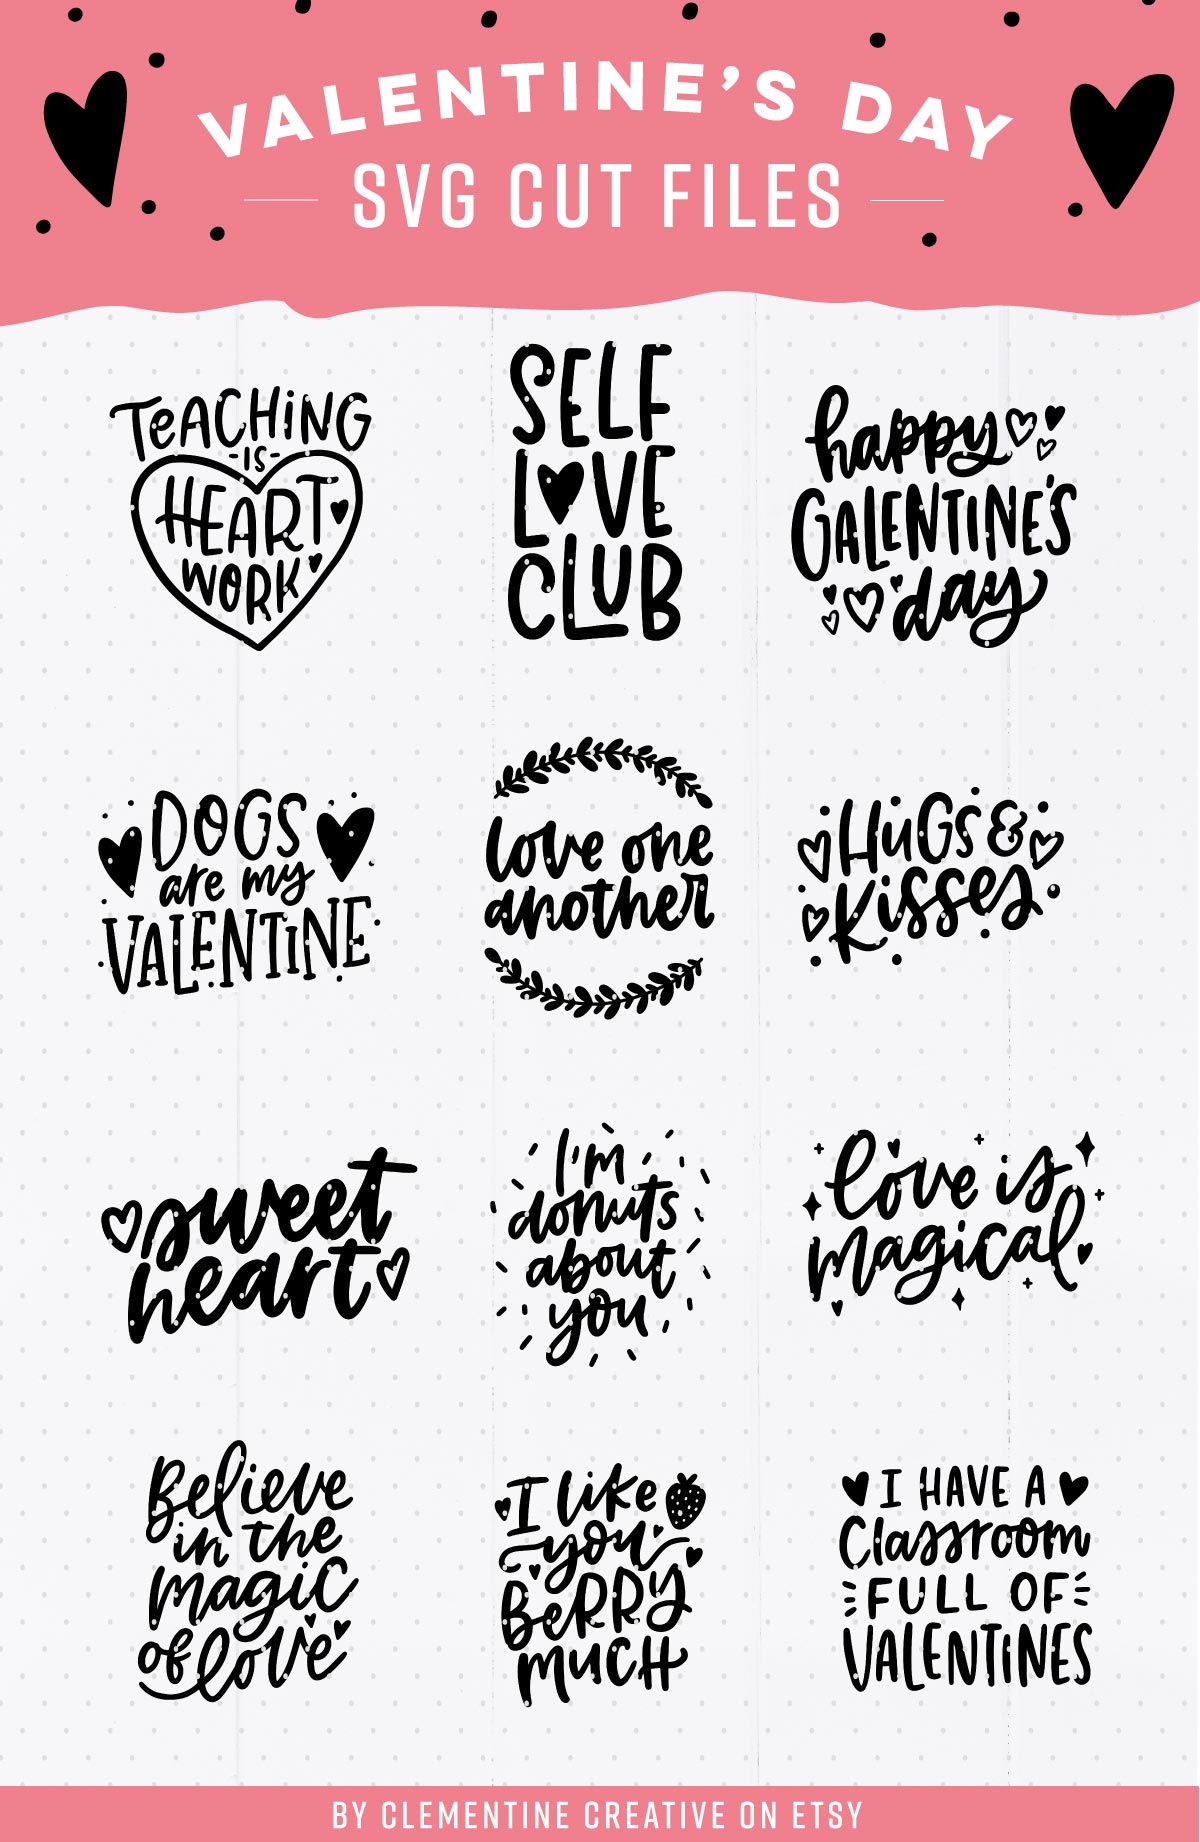 VALENTINE'S DAY
SVG CUT FILES
TeACHiNG
-IS-
HEART
WORK
SELF
LOVE
CLUB
happy
GALENTINE'S
day
DOGS
are my
VALENTiNE
love one
another
HuGS &
Kisses
sweet
heart
I'm
donuts
about
you.
love is
magical
Believe
in the
magic
of love
I like
you
BeRRY
mUCH
I HAVE A
Classroom
FULL OF
VALENTiNES
BY CLEMENTINE CREATIVE ON ETSY